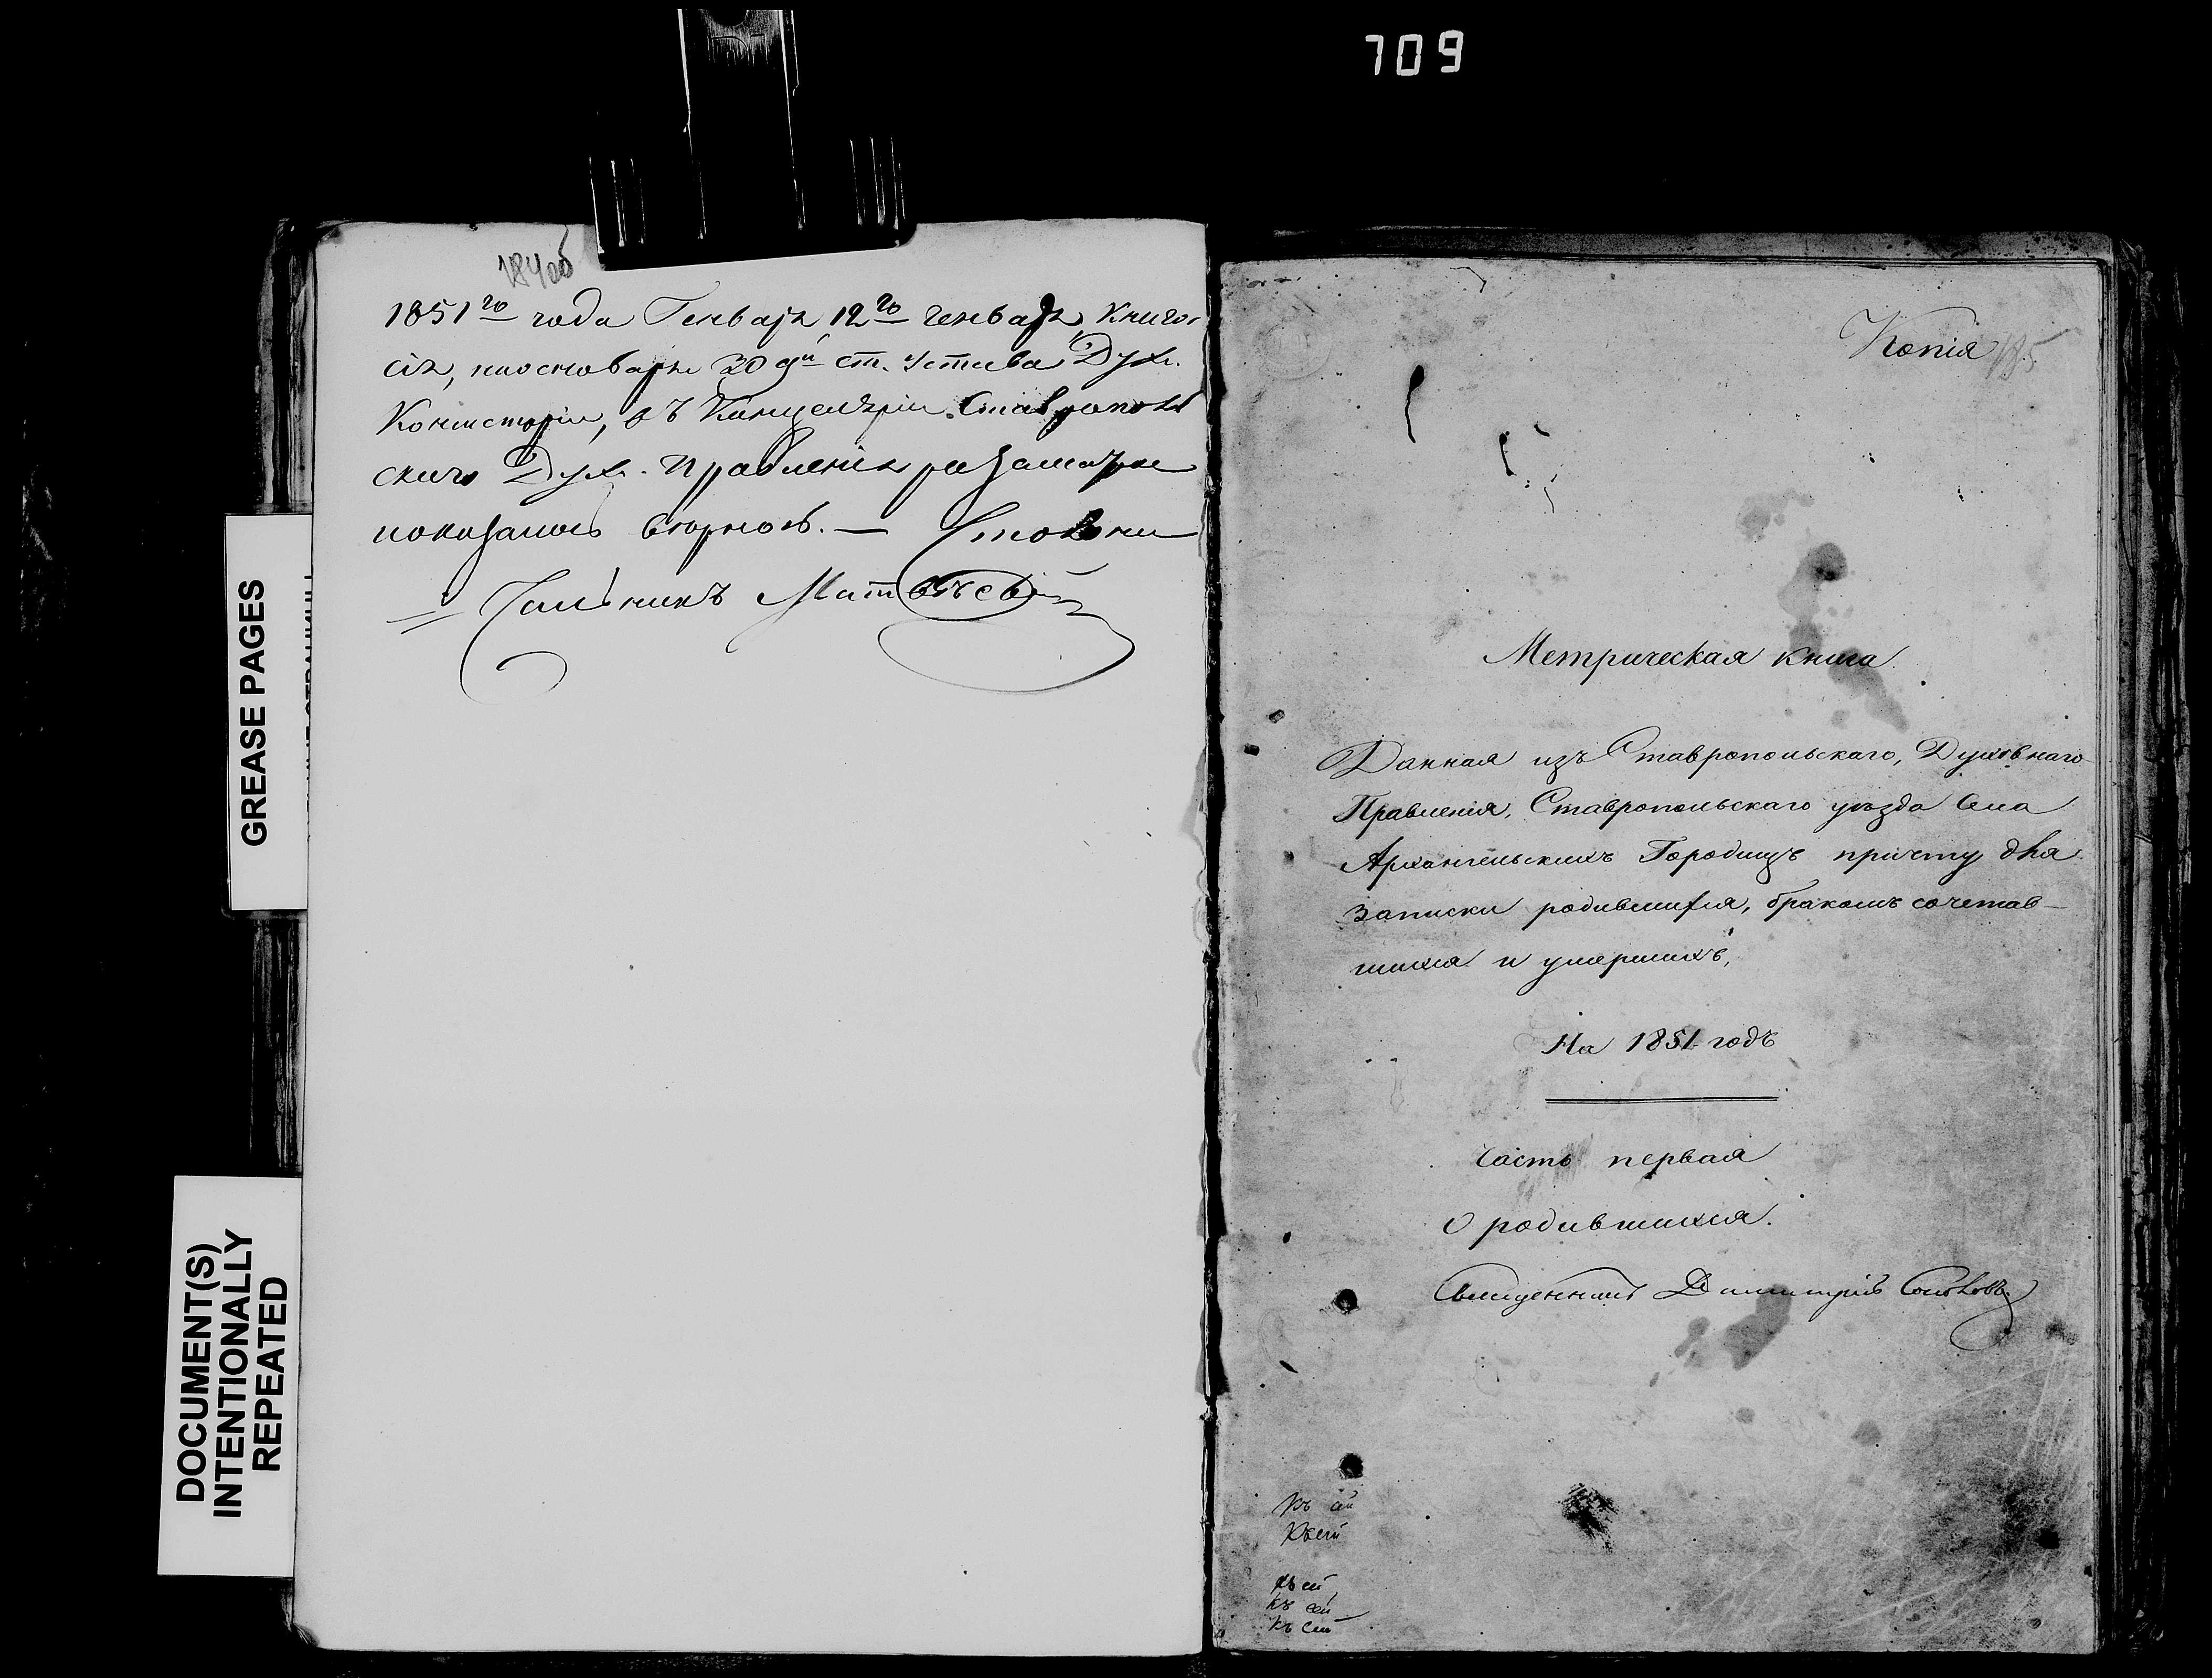 709
184об
1851го года Генваря 12го генваря, книга
сія, на основаніи 30й ст. Устава Дух.
Консисторіи, въ Канцеляріи Ставрополь
скаго Дух. Правленія
показалась вѣрною. — Столона
= чальникъ Матвѣевъ
GREASE PAGES
DOCUMENT(S)
INTENTIONALLY
REPEATED
Копія 185
Метрическая книга
Данная изъ Ставропольскаго, Духовнаго
Правленія, Ставропольскаго уѣзда Села
Архангельскихъ Городищъ причту для
записки родившихся, бракомъ сочетав–
шихся и умершихъ,
На 1851 годъ
Часть первая
О родившихся.
Священникъ Димитрій
къ сей
къ сей
къ сей
къ сей
къ сей